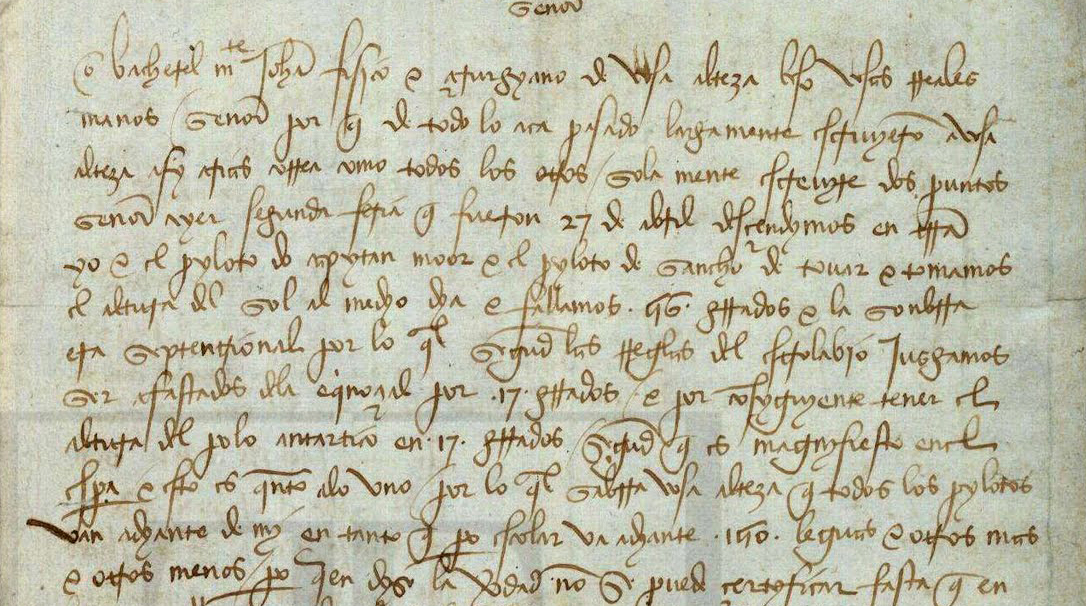 Señor
o bacherel mre Johã fisico e çirurgyano de vosa alteza beso vosas reales
manos Señor por q de todo lo aca pasado largamente escruyerõ a vosa
alteza asy arias correa como todos los otros sola mente escreuire dos puntos
Señor ayer segunda feria q fueron 27 de abril descendymos en terra
yo e el pyloto do capytan moor e el pyloto de Sancho de touar e tomamos
el altura del sol al medyo dya e fallamos 56 grrados e la sonbrra
era septentrional por lo ql segund las reglas del estrolabio Jusgamos
ser afastados dela equinoçial por 17 grrados e por cõsyguyente tener el
altura del polo antartico en 17 grrados segund q es magnyfiesto en el
espera e esto es qnto alo vno por lo ql sabrra vosa alteza q todos los pylotos
van adyante de my en tanto q po escolar va adyante 150 leguas e otros mas
e otros menos po quien dyse la verdad no se puede certyficar fasta q en